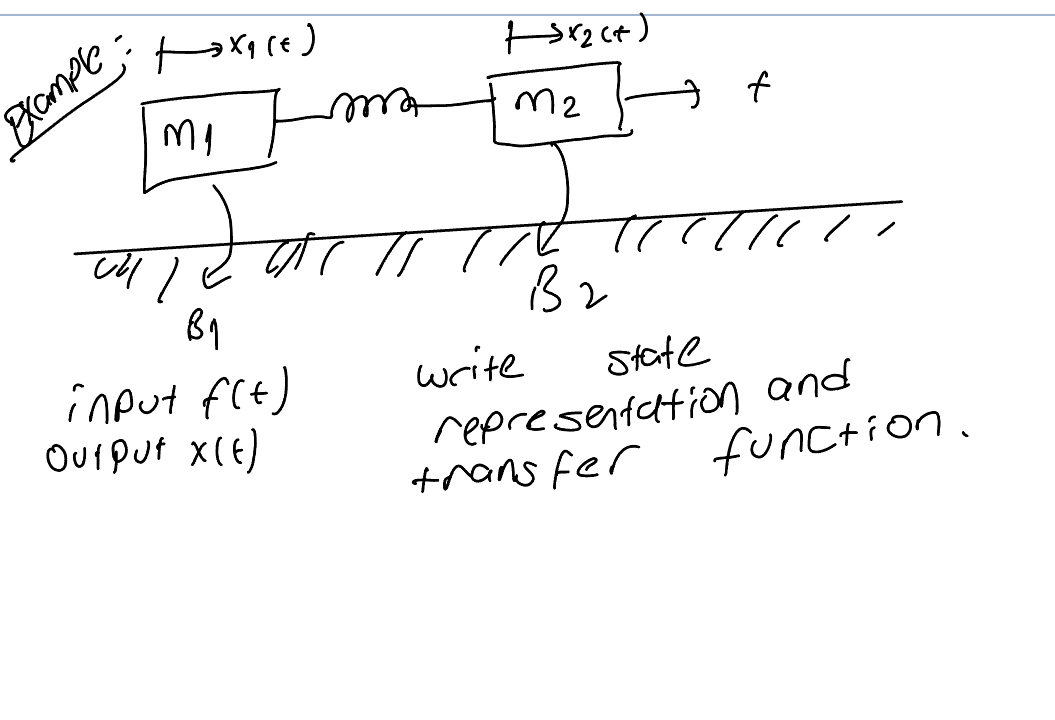 Example:
x1(t)
x2(t)
m1
m2
f
B1
B2
input f(t)
output x(t)
write state
representation and
transfer function.